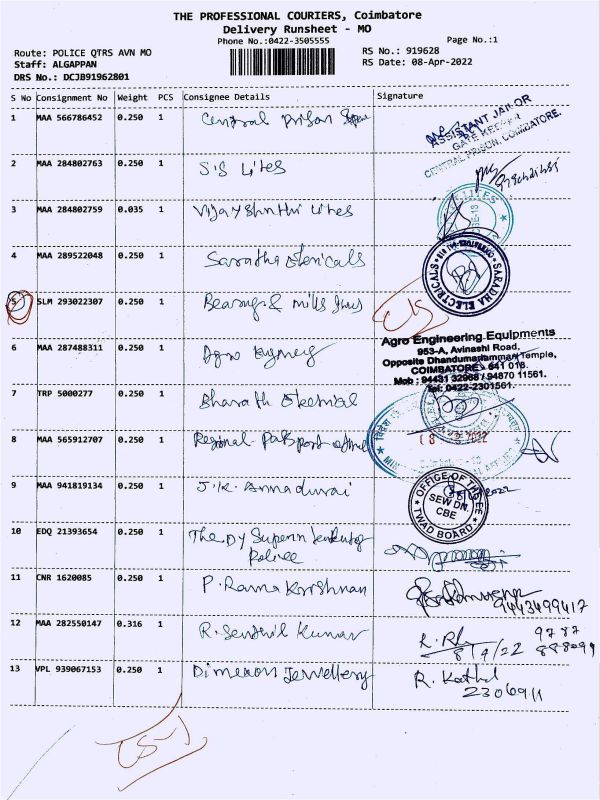 THE PROFESSIONAL COURIERS, Coimbatore
Delivery Runsheet - MO
Phone No.:0422-3505555
Page No.:1
Route: POLICE QTRS AVN MO
RS No.: 919628
Staff: ALGAPPAN
RS Date: 08-Apr-2022
DRS No.: DCJB91962801
S No Consignment No Weight PCS Consignee Details Signature
1 MAA 566786452 0.250 1 Central Prison
ASSISTANT JAILOR
GATE KEEPER
CENTRAL PRISON, COIMBATORE.
2 MAA 284802763 0.250 1 S.S Lites
3 MAA 284802759 0.035 1 Vijayshnthi Lites
4 MAA 289522048 0.250 1 Saradha
SARADHA ELECTRICALS
5 SLM 293022307 0.250 1 Bearings & Mills
6 MAA 287488311 0.250 1 Agro
Agro Engineering Equipments
953-A, Avinashi Road,
Opposite Dhandumariamman Temple,
COIMBATORE - 641 018.
Mob : 94431 32968 / 94870 11561.
Tel: 0422-2301561.
TRP 5000277 0.250 1 Bharath Electrical
8 MAA 565912707 0.250 1 Regional Passport office
9 MAA 941819134 0.250 1 J.K. Annadurai
OFFICE OF THE EE
SEW DN.
CBE
TWAD BOARD
10 EDQ 21393654 0.250 1 The Dy
Police
11 CNR 1620085 0.250 1 P. Rama Krishnan
9443499417
12 MAA 282550147 0.316 1 R. Senthil Kumar
8/4/22
9787
13 VPL 939067153 0.250 1 Dimexon Jewellery
2306911